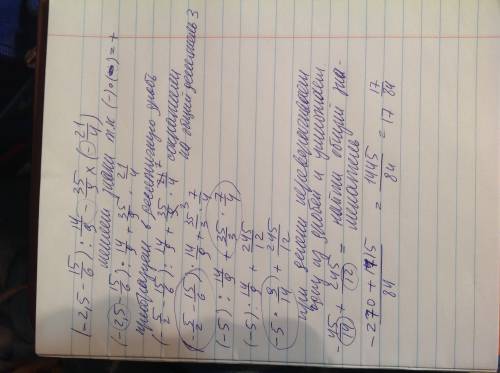 (-2,5 - 15/6) : 14/9 - 35/9 × (-21/4)
меняем знаки т.к (-)·(-)=+
(-2,5 - 15/6) : 14/9 + 35/9 · 21/4
преобразуем в десятичную дробь
(-5/2 - 15/6) : 14/9 + 35/9 · 21/4 сокращаем
на общий делитель 3
(-5/2 - 15/6) : 14/9 + 35/3 · 7/4
(-5) : 14/9 + (35/3 · 7/4)
(-5) : 14/9 + 245/12
-5 · 9/14 + 245/12
при делении переворачиваем
одну из дробей и умножаем
-45/14 + 245/12 = найти общий зна-
менатель
-270 + 1715/84 = 1445/84 = 17 17/84